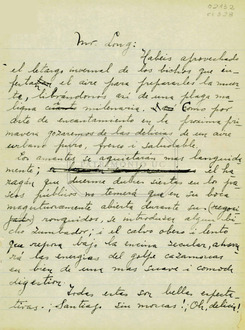 Mr. Long:
Habéis aprovechado
el letargo invernal de los bichos que in-
el aire para prepararles la muer-
te, librándonos así de una plaga ma-
ligna milenaria. Como por
arte de encantamiento en la próxima pri-
mavera gozaremos de las delicias de un aire
urbano puro, fresco i saludable.
Los amantes se aquietarán mas languida-
mente; el hol-
gazán que duerme duber siesta en los pa-
seos públicos no temerá que en su boca
abierta durante sus
ronquidos, se introduzca algun bi-
cho zumbador; i el calvo obeso i lento
que reposa bajo la encina secular, ahorra-
rá las energías del golpe cazamoscas
en bien de una mas suave i comoda
digestion.
Todas estas son bellas especta-
tivas. ¡Santiago sin moscas! ¡Oh, delicia!